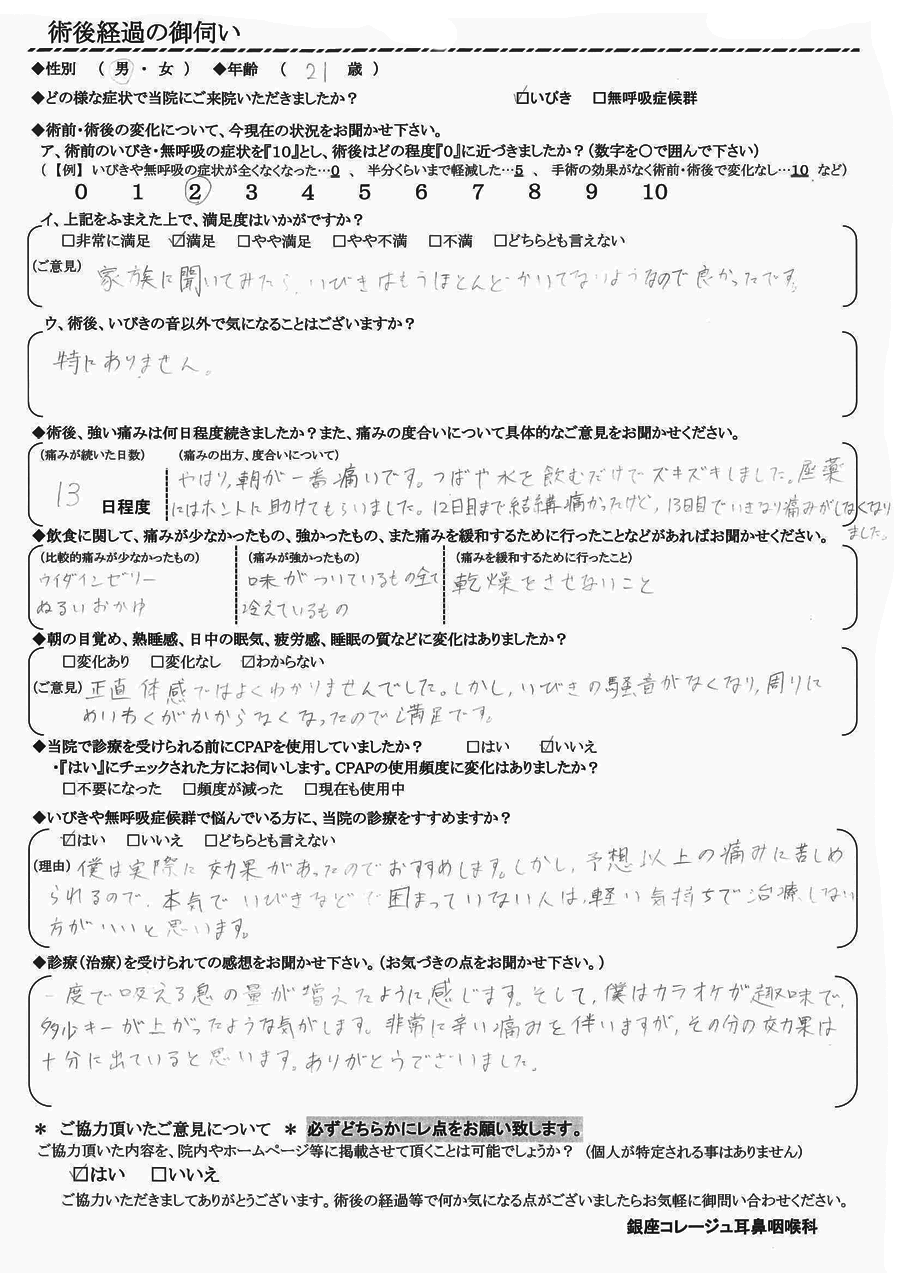 術後経過の御伺い
◆性別 （ 男 ・ 女 ） ◆年齢 （ 21 歳 ）
◆どの様な症状で当院にご来院いただきましたか？ ☑いびき □無呼吸症候群
◆術前・術後の変化について、今現在の状況をお聞かせ下さい。
ア、術前のいびき・無呼吸の症状を『10』とし、術後はどの程度『0』に近づきましたか？（数字を○で囲んで下さい）
（【例】 いびきや無呼吸の症状が全くなくなった…0 、 半分くらいまで軽減した…5 、 手術の効果がなく術前・術後で変化なし…10 など）
0 1 2 3 4 5 6 7 8 9 10
イ、上記をふまえた上で、満足度はいかがですか？
□非常に満足 ☑満足 □やや満足 □やや不満 □不満 □どちらとも言えない
（ご意見） 家族に聞いてみたら、いびきはもうほとんどかいてないようなので良かったです。
ウ、術後、いびきの音以外で気になることはございますか？
特にありません。
◆術後、強い痛みは何日程度続きましたか？また、痛みの度合いについて具体的なご意見をお聞かせください。
（痛みが続いた日数） （痛みの出方、度合いについて）
やはり、朝が一番痛いです。つばや水を飲むだけでズキズキしました。座薬
13 日程度 にはホントに助けてもらいました。12日目まで結構痛かったけど、13日目でいきなり痛みがしなくなり
ました。
◆飲食に関して、痛みが少なかったもの、強かったもの、また痛みを緩和するために行ったことなどがあればお聞かせください。
（比較的痛みが少なかったもの） （痛みが強かったもの） （痛みを緩和するために行ったこと）
ウイダインゼリー 味がついているもの全て 乾燥をさせないこと
ぬるいおかゆ 冷えているもの
◆朝の目覚め、熟睡感、日中の眠気、疲労感、睡眠の質などに変化はありましたか？
□変化あり □変化なし ☑わからない
（ご意見） 正直体感ではよくわかりませんでした。しかし、いびきの騒音がなくなり、周りに
めいわくがかからなくなったので満足です。
◆当院で診療を受けられる前にCPAPを使用していましたか？ □はい ☑いいえ
・『はい』にチェックされた方にお伺いします。CPAPの使用頻度に変化はありましたか？
□不要になった □頻度が減った □現在も使用中
◆いびきや無呼吸症候群で悩んでいる方に、当院の診療をすすめますか？
☑はい □いいえ □どちらとも言えない
（理由） 僕は実際に効果があったのでおすすめします。しかし、予想以上の痛みに苦しめ
られるので、本気でいびきなどで困まっていない人は、軽い気持ちで治療しない
方がいいと思います。
◆診療（治療）を受けられての感想をお聞かせ下さい。（お気づきの点をお聞かせ下さい。）
一度で吸える息の量が増えたように感じます。そして、僕はカラオケが趣味で、
多少キーが上がったような気がします。非常に辛い痛みを伴いますが、その分の効果は
十分に出ていると思います。ありがとうございました。
＊ ご協力頂いたご意見について ＊ 必ずどちらかにレ点をお願い致します。
ご協力頂いた内容を、院内やホームページ等に掲載させて頂くことは可能でしょうか？ （個人が特定される事はありません）
☑はい □いいえ
ご協力いただきましてありがとうございます。術後の経過等で何か気になる点がございましたらお気軽に御問い合わせください。
銀座コレージュ耳鼻咽喉科